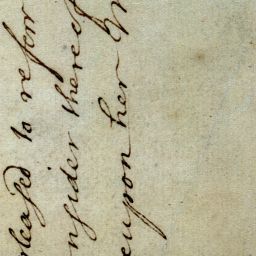 pleased to refer
nsider there
eupon her